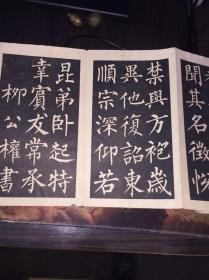 聞其名徵悅
禁與方袍歲
異他復詔東
順宗深仰若
昆弟臥起特
幸賓友常承
柳公權書